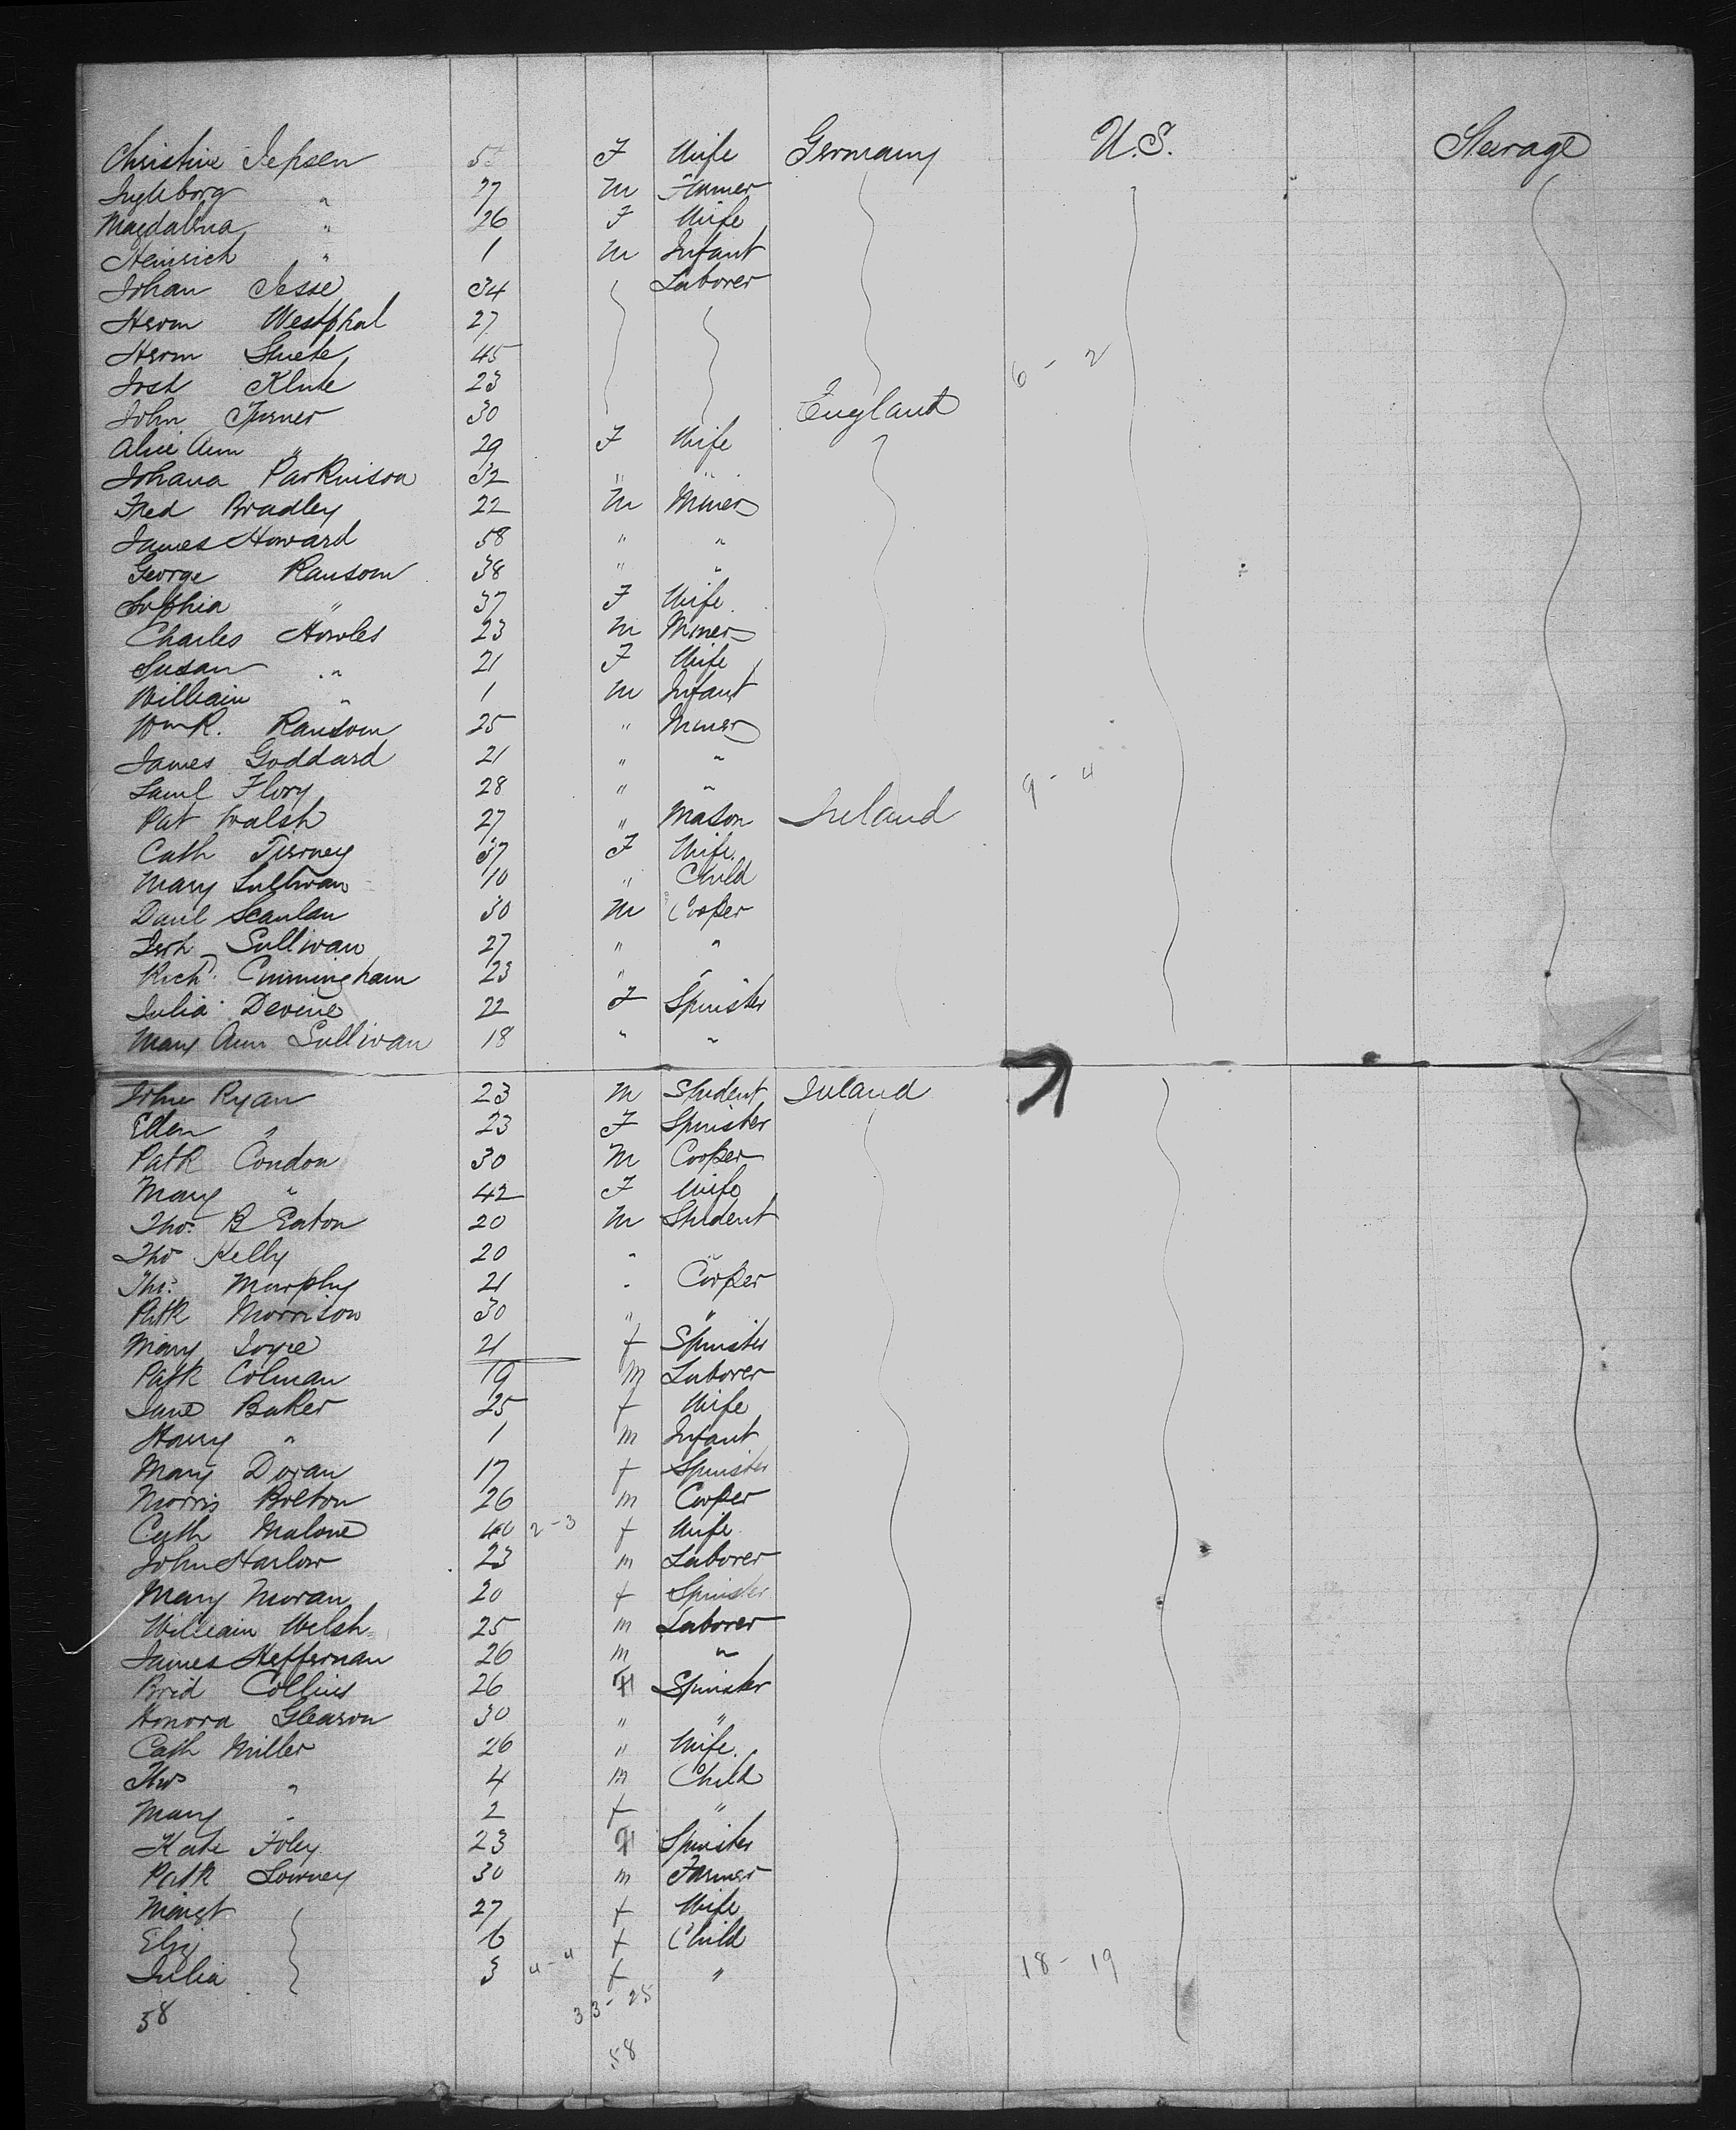 Christine Jepsen 55 F Wife Germany U.S. Steerage
Ingleborg " 27 M Farmer
Magdalena " 26 F Wife
Heinrich " 1 M Infant
Johan Jesse 34 Laborer
Herm Westphal 27
Herm Stuete 45 6 - 2
Jost Klute 23
John Turner 30 England
Alice Ann " 29 F Wife
Johana Parkinison 32 " "
Fred Bradley 22 M Miner
James Howard 58 " "
George Ransom 38 " "
Sophia " 37 F Wife
Charles Howles 23 M Miner
Susan " 21 F Wife
William " 1 M Infant
Wm R. Ransom 25 " Miner
James Goddard 21 " "
Saml Flory 28 " " 9 - 4
Pat Walsh 27 " Mason Ireland
Cath Tierney 37 F Wife
Mary Sullivan 10 " Child
Danl Scanlan 30 M Cooper
Jerh Sullivan 27 " "
Richd. Cunningham 23 " "
Julia Devine 22 F Spinster
Mary Ann Sullivan 18 " "
John Ryan 23 M Student Ireland
Ellen " 23 F Spinster
Patk Condon 30 M Cooper
Mary " 42 F Wife
Thos. B Eaton 20 M Student
Tho Kelly 20 " "
Thos. Murphy 21 " Cooper
Patk Morrison 30 " "
Mary Joyce 21 f Spinster
Patk Colman 19 M Laborer
Jane Baker 25 f Wife
Harry " 1 m Infant
Mary Doran 17 f Spinster
Morris Bolton 26 m Cooper
Cath Malone 40 2-3 f Wife
John Harlow 23 m Laborer
Mary Moran 20 f Spinster
William Welsh 25 m Laborer
James Heffernan 26 m "
Brid Collins 26 F Spinster
Honora Gleason 30 " "
Cath Miller 26 " Wife
Thos " 4 m Child
Mary " 2 f "
Kate Foley 23 F Spinster
Patk Lowney 30 m Farmer
Margt 27 f Wife
Eliz 6 f Child
Julia 3 4-4 f " 18 - 19
58 33-25
58